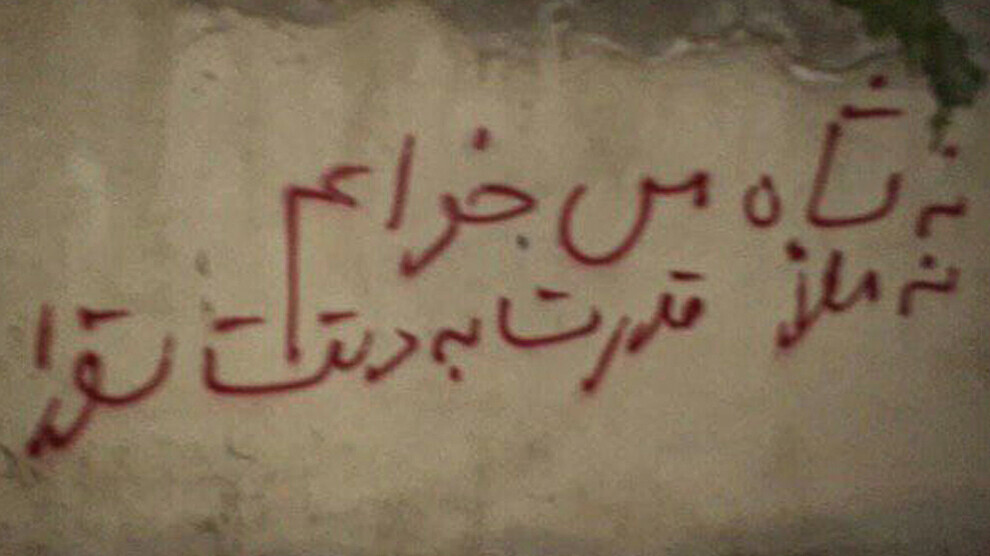 نه شاه می خوایم
نه ملا قدرت به دست شورا